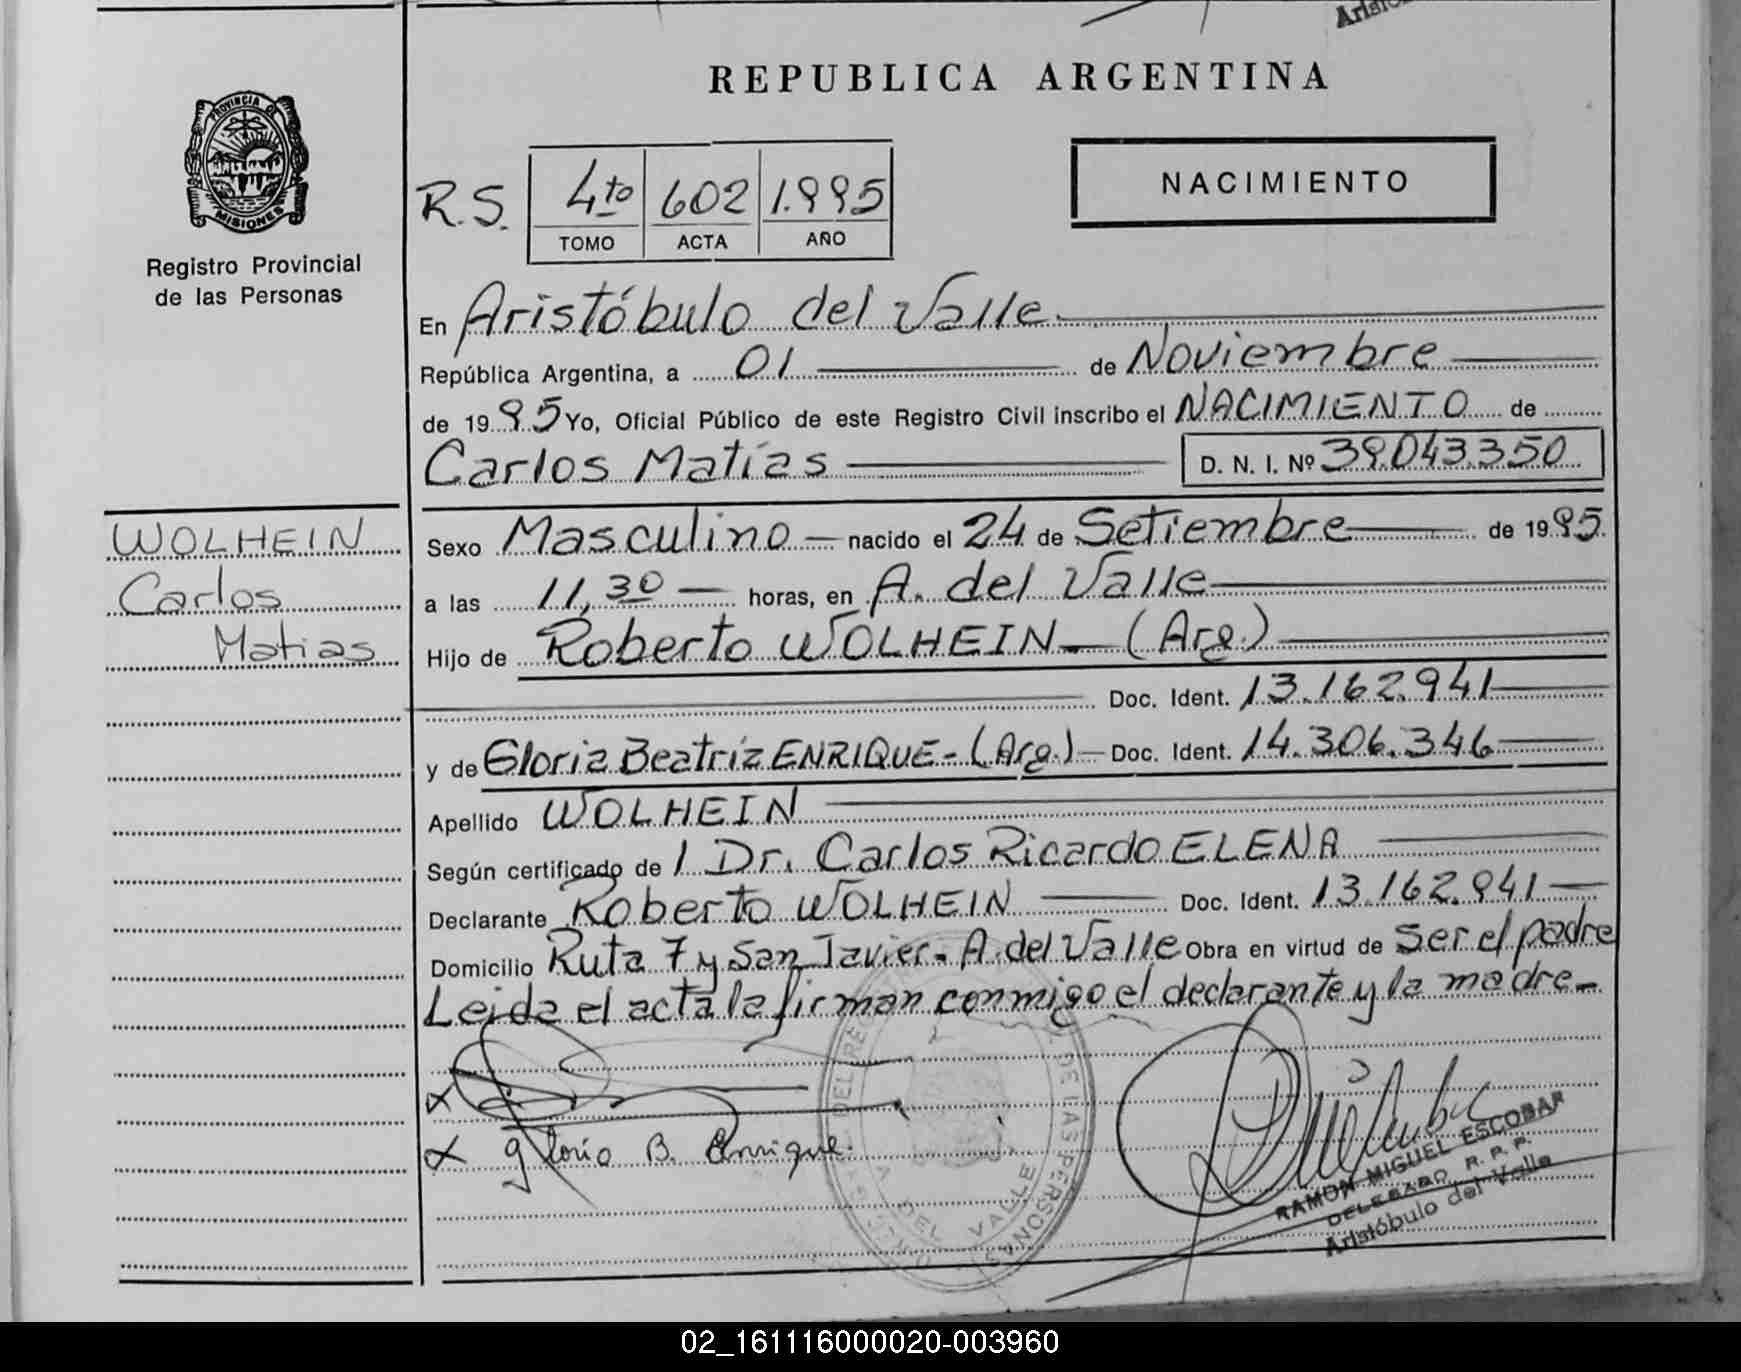 Aristó
REPUBLICA ARGENTINA
PROVINCIA DE
MISIONES
Registro Provincial
de las Personas
R.S.
4to 602 1.995
TOMO ACTA AÑO
NACIMIENTO
En Aristóbulo del Valle
República Argentina, a 01 de Noviembre
de 1995 Yo, Oficial Público de este Registro Civil inscribo el NACIMIENTO de
Carlos Matías D. N. I. Nº 39.043.350
WOLHEIN
Carlos
Matias
Sexo Masculino nacido el 24 de Setiembre de 1995
a las 11,30 horas, en A. del Valle
Hijo de Roberto WOLHEIN (Arg.)
Doc. Ident. 13.162.941
y de Gloria Beatríz ENRIQUE - (Arg.) Doc. Ident. 14.306.346
Apellido WOLHEIN
Según certificado de / Dr. Carlos Ricardo ELENA
Declarante Roberto WOLHEIN Doc. Ident. 13.162.941
Domicilio Ruta 7 y San Javier - A. del Valle Obra en virtud de Ser el padre
Leida el acta la firman conmigo el declarante y la madre
x
x gloria B. Enrique.
DE LAS PERSONAS
A DEL VALLE
RAMON MIGUEL ESCOBAR
DELEGADO R. P. P.
Aristóbulo del Valle
02_161116000020-003960